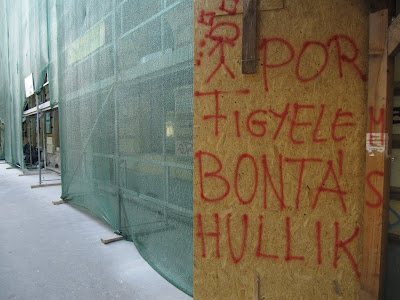 POR
FIGYELEM
BONTÁS
HULLIK